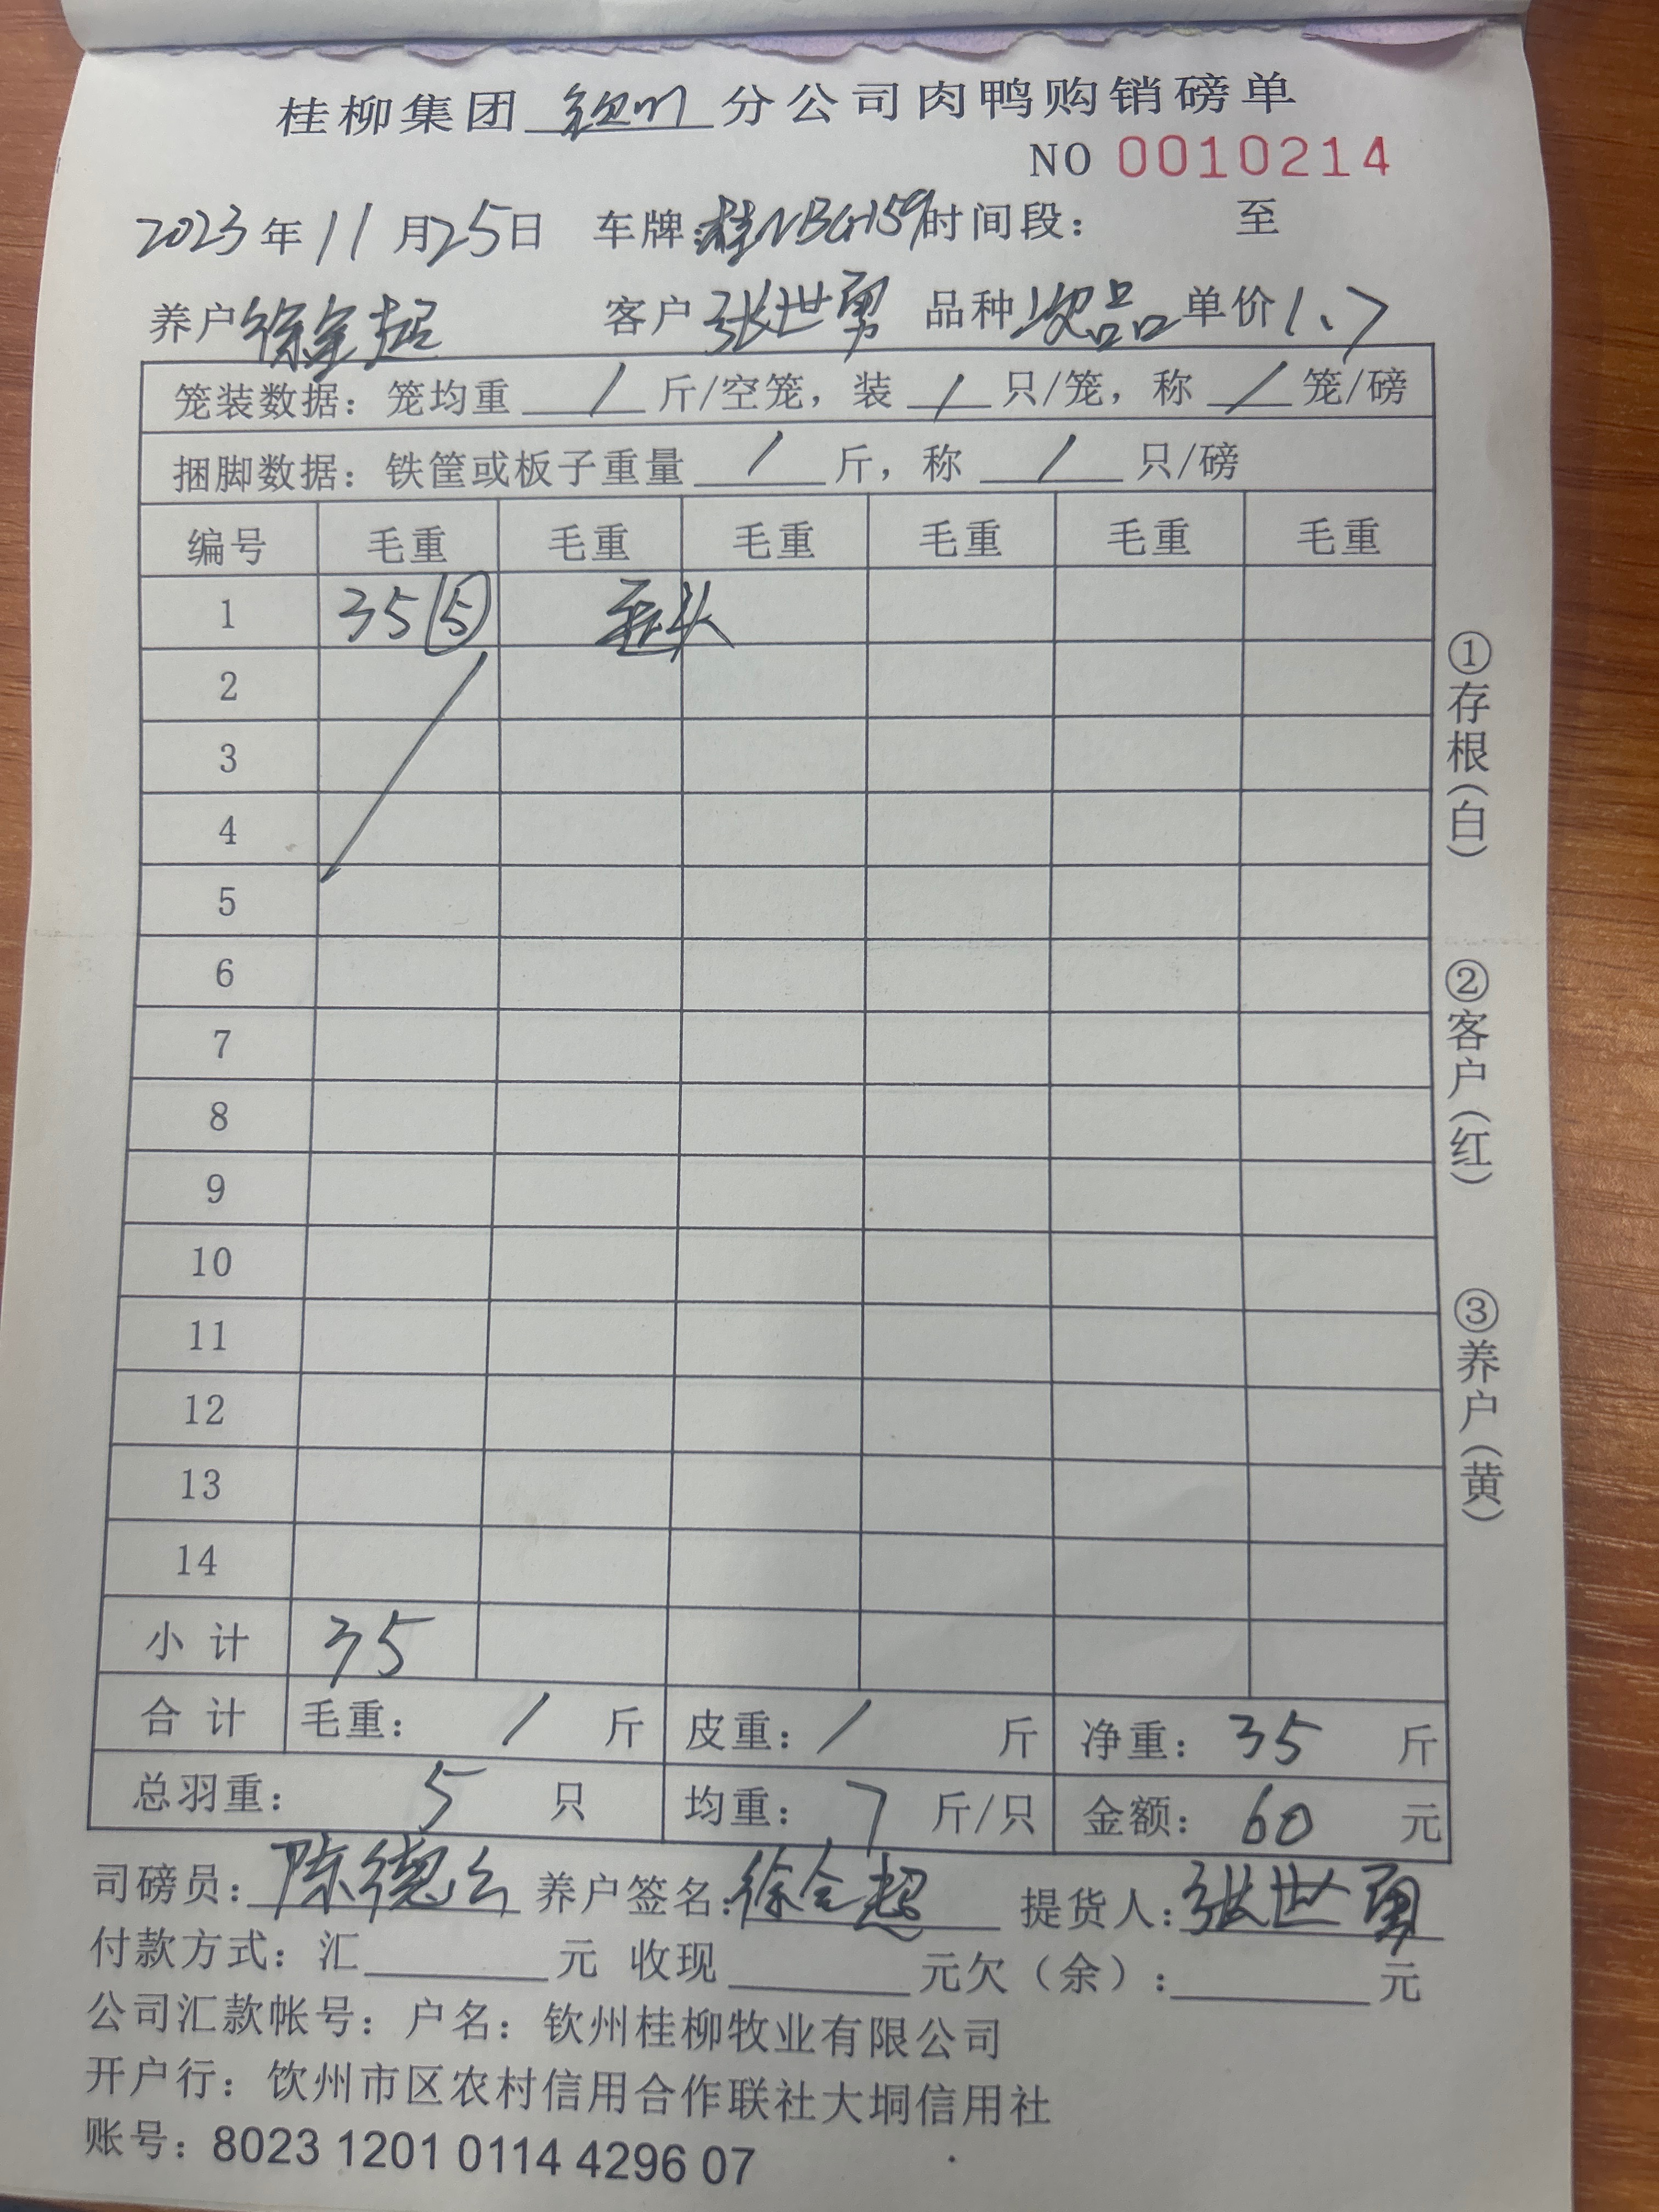 桂柳集团 钦州 分公司肉鸭购销磅单
NO 0010214
2023年11月25日 车牌:桂NBG159 时间段: 至
养户 徐全超 客户 张世勇 品种 次品 单价 1.7
笼装数据:笼均重 / 斤/空笼,装 / 只/笼,称 / 笼/磅
捆脚数据:铁筐或板子重量 / 斤,称 / 只/磅
编号 毛重 毛重 毛重 毛重 毛重 毛重
1 35 5
2
3
4
5
6
7
8
9
10
11
12
13
14
小计 35
合计 毛重: / 斤 皮重: / 斤 净重: 35 斤
总羽重: 5 只 均重: 7 斤/只 金额: 60 元
司磅员: 陈德云 养户签名: 徐全超 提货人: 张世勇
付款方式:汇 元 收现 元欠(余): 元
公司汇款帐号:户名:钦州桂柳牧业有限公司
开户行:饮州市区农村信用合作联社大垌信用社
账号:8023 1201 0114 4296 07
①存根(白)
②客户(红)
③养户(黄)